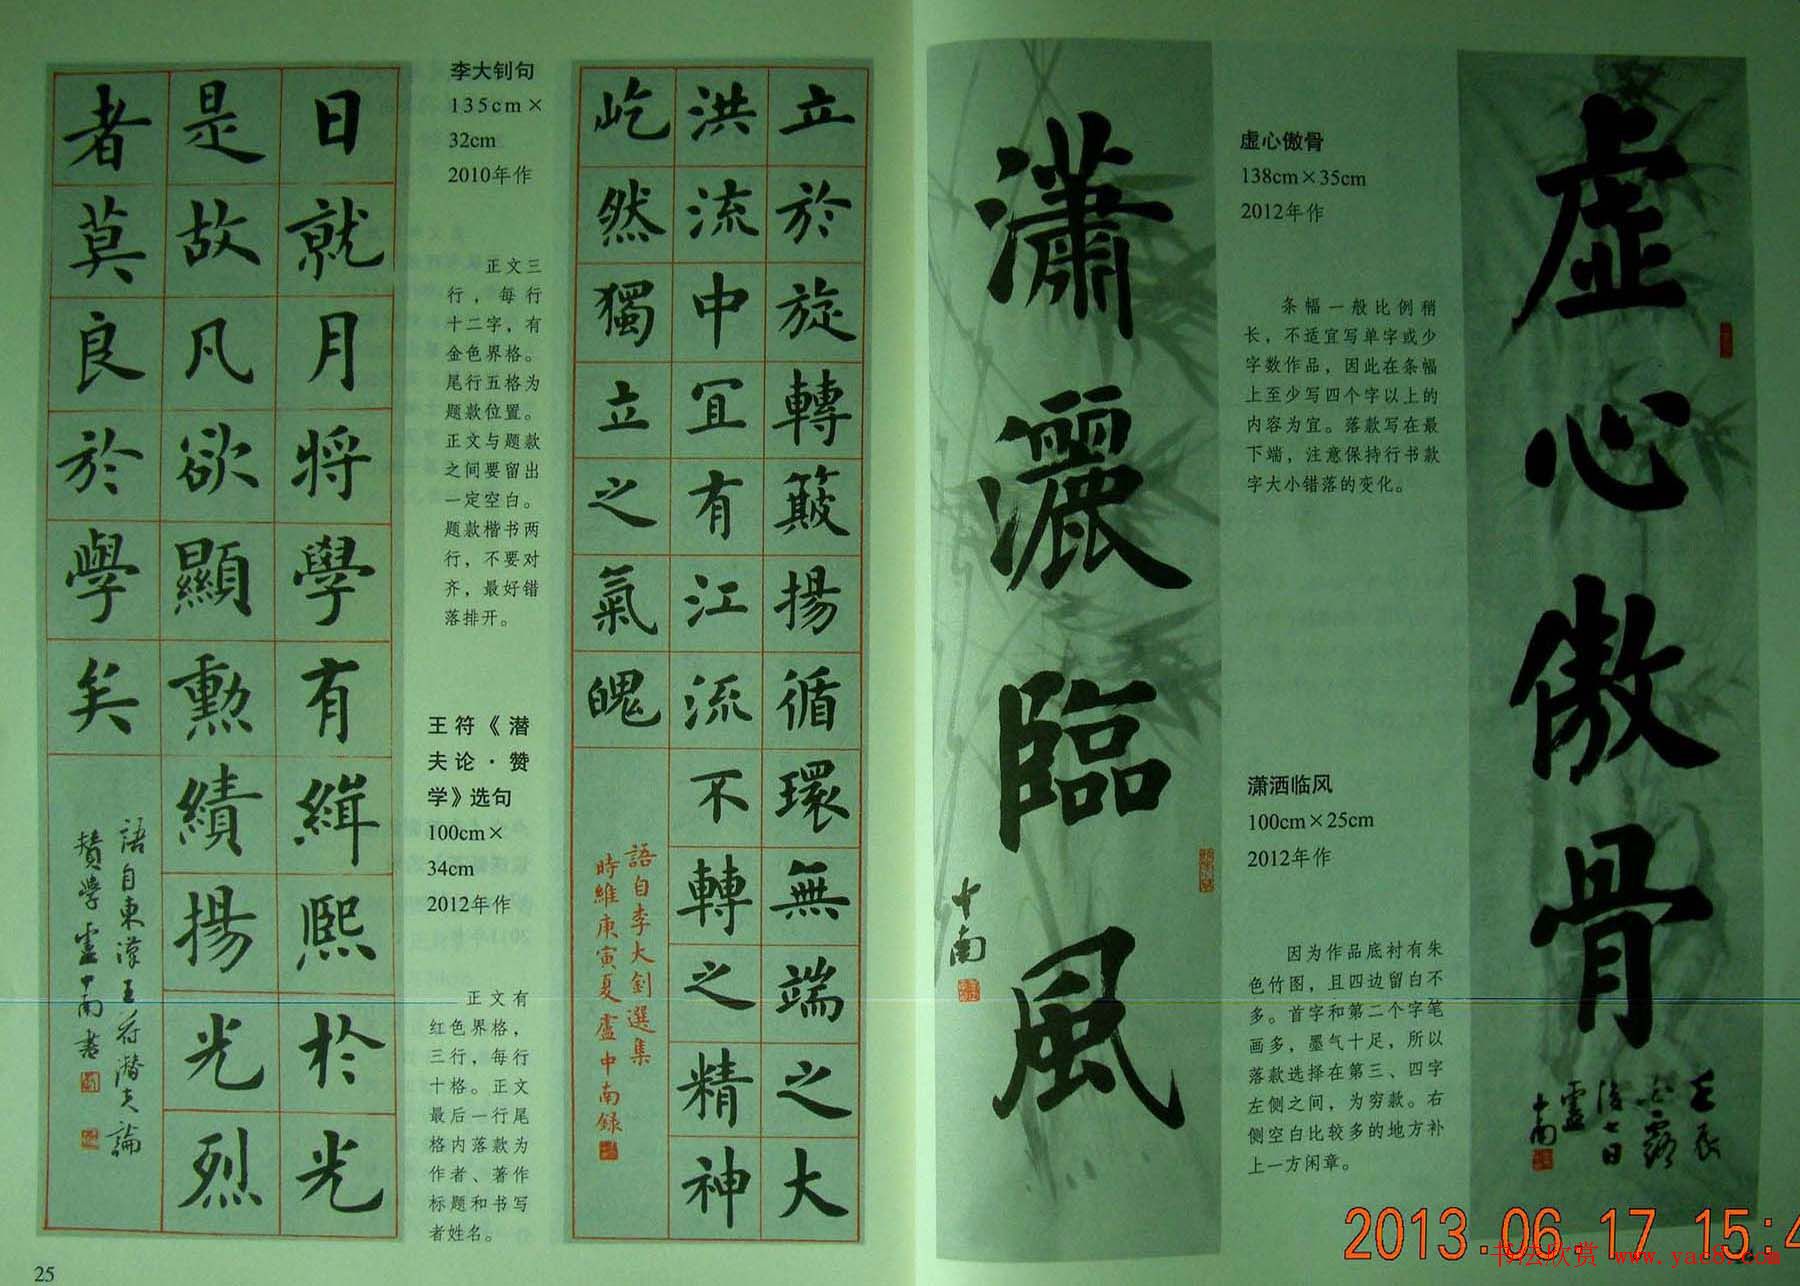 日就月将學有緝熙於光
是故凡欲顯勳績揚光烈
者莫良於學矣
語自東漢王符潛夫論
贊學盧中南書
李大钊句
135cm×
32cm
2010年作
正文三
行，每行
十二字，有
金色界格。
尾行五格为
题款位置。
正文与题款
之间要留出
一定空白。
题款楷书两
行，不要对
齐，最好错
落排开。
王符《潜
夫论·赞
学》选句
100cm×
34cm
2012年作
正文有
红色界格，
三行，每行
十格。正文
最后一行尾
格内落款为
作者、著作
标题和书写
者姓名。
立於旋轉簸揚循環無端之大
洪流中冝有江流不轉之精神
屹然獨立之氣魄
語自李大釗選集
時維庚寅夏盧中南録
25
瀟灑臨風
中南
虚心傲骨
138cm×35cm
2012年作
条幅一般比例稍
长，不适宜写单字或少
字数作品，因此在条幅
上至少写四个字以上的
内容为宜。落款写在最
下端，注意保持行书款
字大小错落的变化。
潇洒临风
100cm×25cm
2012年作
因为作品底衬有朱
色竹图，且四边留白不
多。首字和第二个字笔
画多，墨气十足，所以
落款选择在第三、四字
左侧之间，为穷款。右
侧空白比较多的地方补
上一方闲章。
虚心傲骨
壬辰
白露
後七日
盧
中南
2013.06.17 15:4
书法欣赏 www.yac8.com